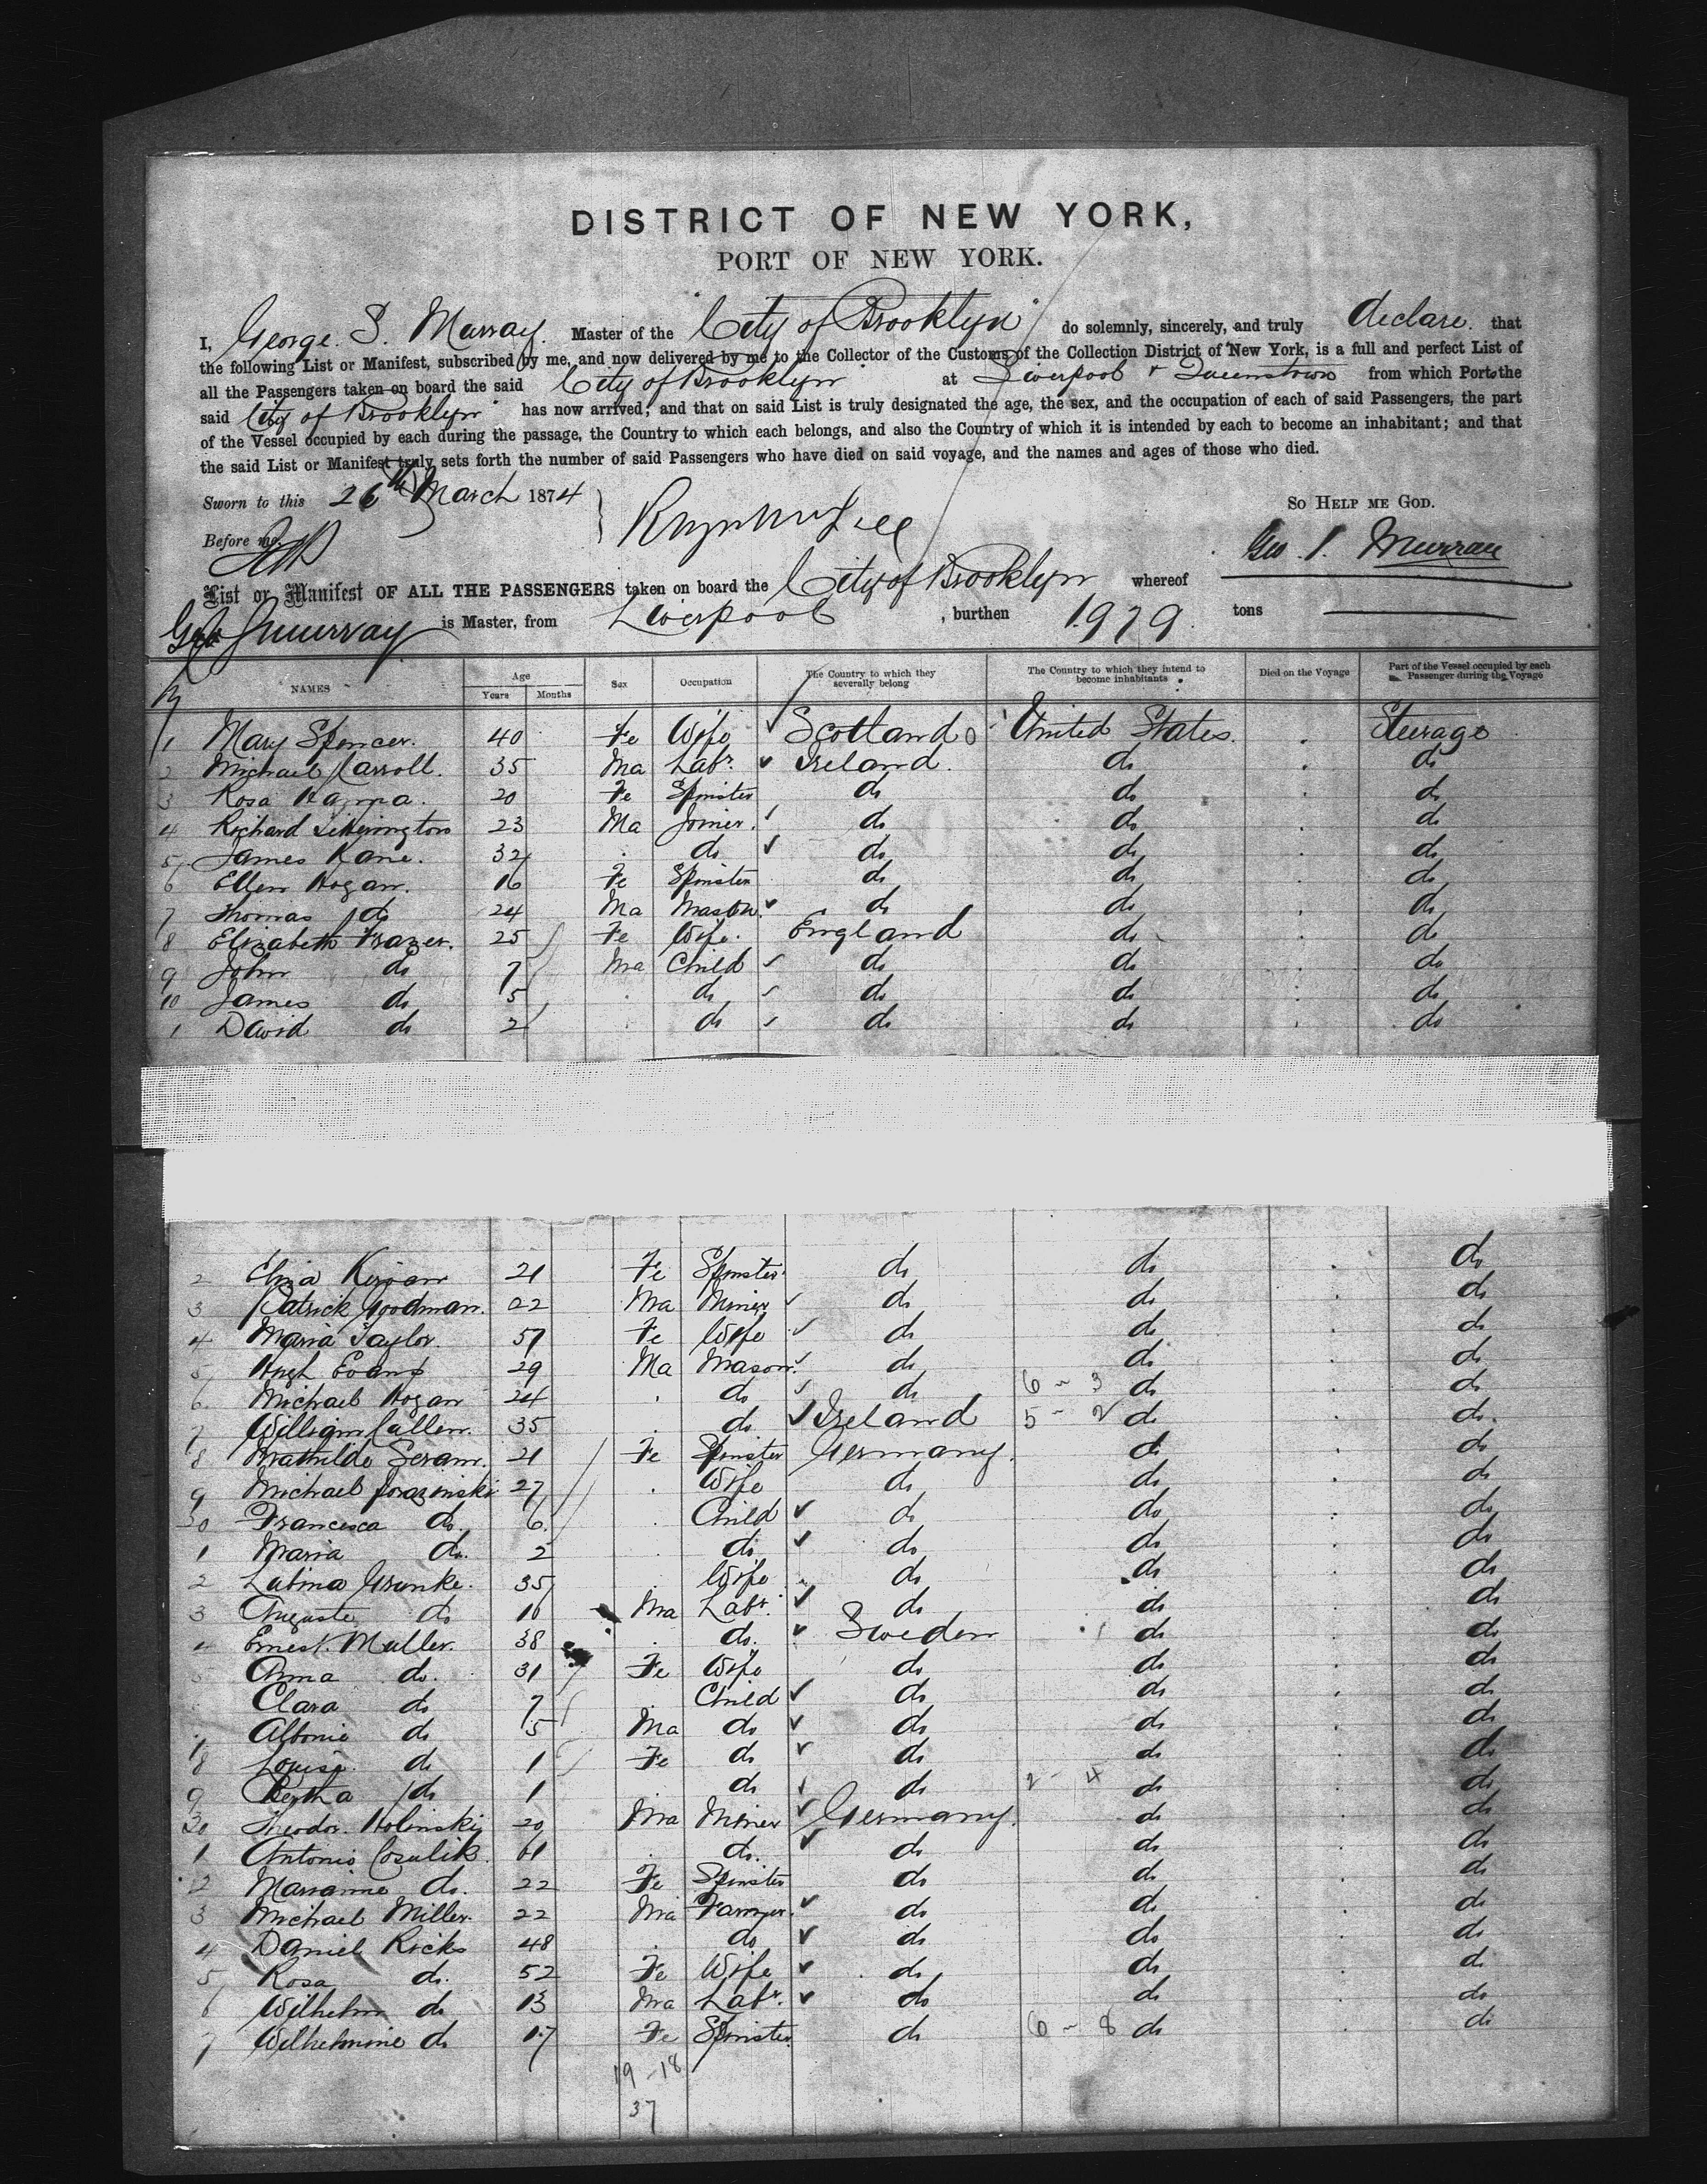 DISTRICT OF NEW YORK,
PORT OF NEW YORK.
I, George. S. Murray. Master of the "City of Brooklyn" do solemnly, sincerely, and truly declare. that
the following List or Manifest, subscribed by me, and now delivered by me to the Collector of the Customs of the Collection District of New York, is a full and perfect List of
all the Passengers taken on board the said City of Brooklyn at Liverpool & Queenstown from which Port the
said City of Brooklyn has now arrived; and that on said List is truly designated the age, the sex, and the occupation of each of said Passengers, the part
of the Vessel occupied by each during the passage, the Country to which each belongs, and also the Country of which it is intended by each to become an inhabitant; and that
the said List or Manifest truly sets forth the number of said Passengers who have died on said voyage, and the names and ages of those who died.
Sworn to this 26th March 1874 So Help me God.
Before me Geo. S. Murray
List or Manifest OF ALL THE PASSENGERS taken on board the City of Brooklyn whereof
Geo S Murray is Master, from Liverpool, burthen 1979 tons
NAMES Age Years Months Sex Occupation The Country to which they severally belong The Country to which they intend to become inhabitants Died on the Voyage Part of the Vessel occupied by each Passenger during the Voyage
1 Mary Spencer. 40 Fe Wife Scotland United States. Steerage
2 Michael Carroll. 35 Ma Labr. Ireland. do do
3 Rosa 20 Fe Spinster do do do
4 Richard 23 Ma Joiner. do do do
5 James Kane. 32 do do do do
6 Ellen Hogan. 16 Fe Spinster do do do
7 Thomas do 24 Ma Mason. do do do
8 Elizabeth Frazer. 25 Fe Wife. England do do
9 John do 7 Ma Child do do do
10 James do 5 do do do do
1 David do 2 do do do do
2 Eliza 21 Fe Spinster do do do
3 Patrick Goodman. 22 Ma Miner do do do
4 Maria Taylor. 57 Fe Wife do do do
5 Hugh Evans 29 Ma Mason. do do do
6 Michael Hogan 24 do do 6 - 3 do do
7 William Cullen. 35 do Ireland 5 - 2 do do.
8 Mathilde 21 Fe Spinster Germany. do do
9 Michael 27 Wife do do do
20 Francisca do. 6 Child do do do
1 Maria do. 2 do do do do
2 Grunke. 35 Wife do do do
3 Auguste do 16 Ma Labr. do do do
4 Ernest. Muller. 38 do. Sweden do do
Anna do. 31 Fe Wife do do do
Clara do 7 Child do do do
do 5 Ma do do do do
8 Louise. do 1 Fe do do do do
9 Bertha do 1 do do 2 - 4 do do
30 Theodor. Holinski 20 Ma Miner Germany. do do
1 Antonio Cosulik 61 do. do do do
2 Marianne do. 22 Fe Spinster do do do
3 Michael Miller. 22 Ma Farmer. do do do
4 Daniel Ricks 48 do do do do
5 Rosa do. 52 Fe Wife do do do
6 Wilhelm do 13 Ma Labr. do do do
7 Wilhelmine do 17 Fe Spinster. do 6 - 8 do do
19 - 18
37